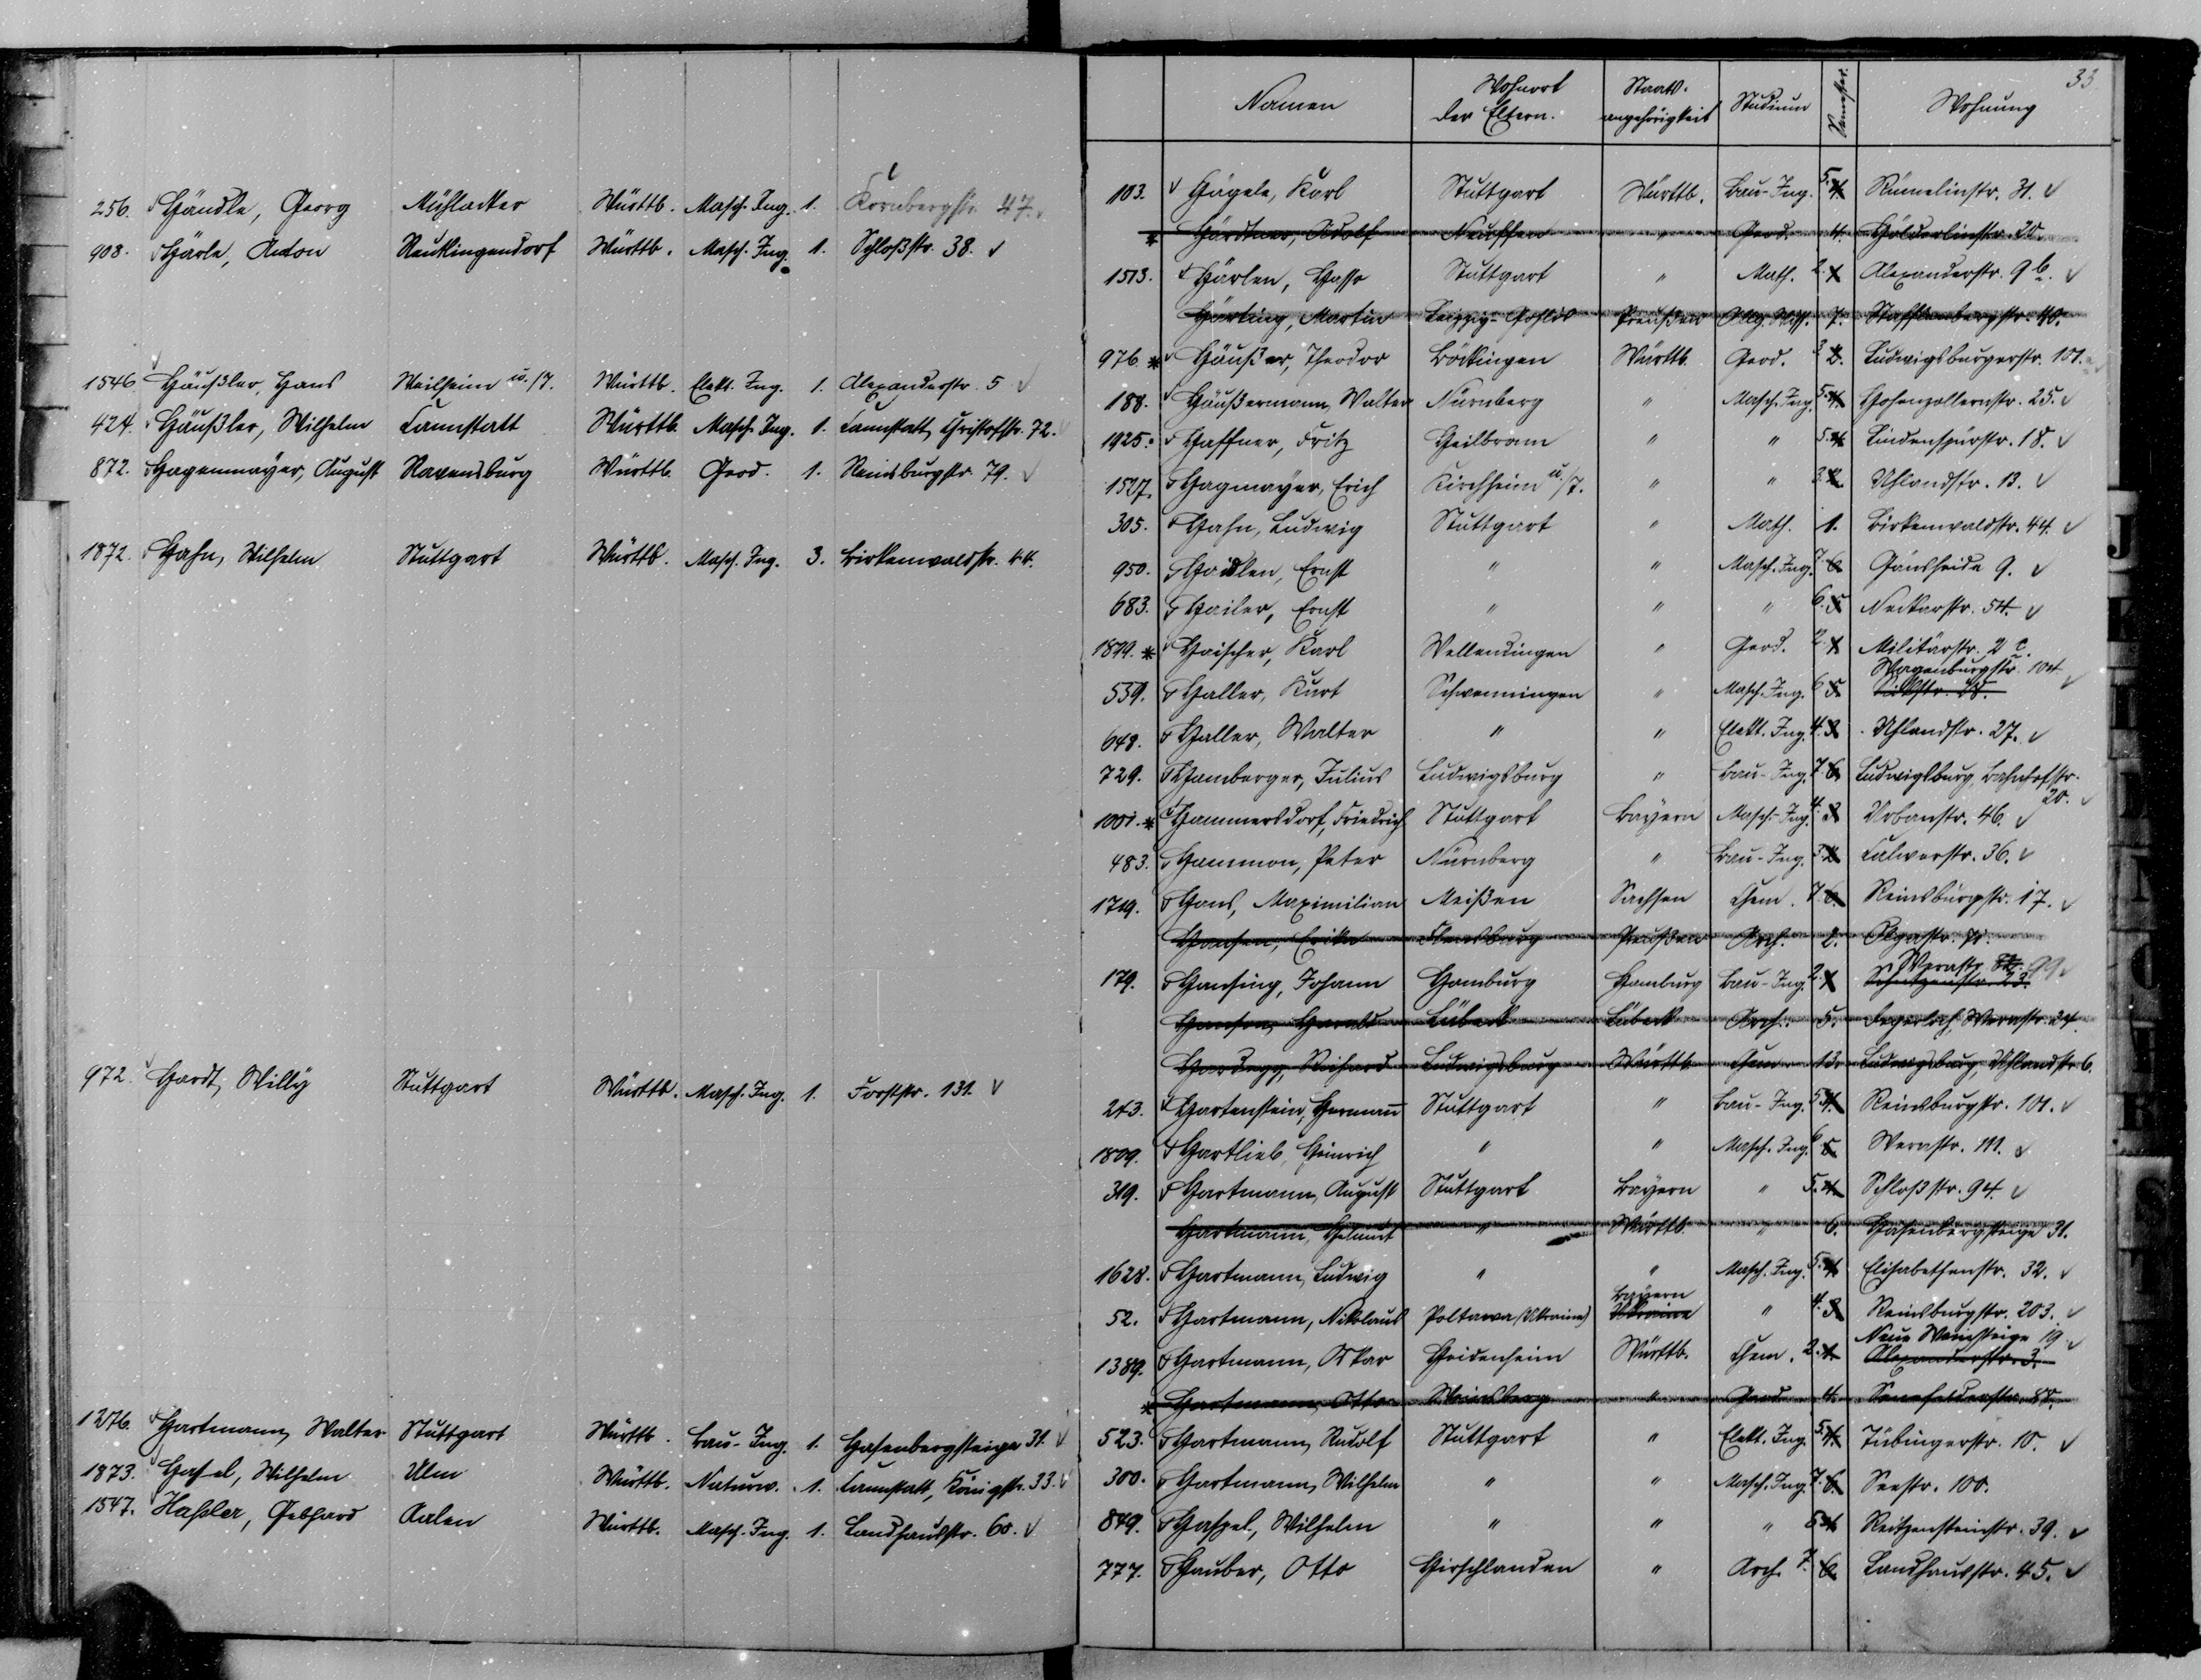 256. Händle, Georg Mühlacker Württb. Masch. Ing. 1. Kornbergstr. 47.
908. Härle, Anton Reutlingendorf Württb. Masch. Ing. 1. Schloßstr. 38.
1546. Häußler, Hans Weilheim u./T. Württb. Elekt. Ing. 1. Alexanderstr. 5
424. Häußler, Wilhelm Cannstatt Württb. Masch. Ing. 1. Cannstatt, Christofstr. 72.
872. Hagenmayer, August Ravensburg Württb. Geod. 1. Reinsburgstr. 79.
1872. Hahn, Wilhelm Stuttgart Württb. Masch. Ing. 3. Birkenwaldstr. 44.
972. Hardt, Willy Stuttgart Württb. Masch. Ing. 1. Forststr. 131.
1276. Hartmann, Walter Stuttgart Württb. Bau-Ing. 1. Hasenbergsteige 31.
1873. Hasel, Wilhelm Ulm Württb. Naturw. 1. Cannstatt, Königstr. 33.
1547. Hassler, Gebhard Aalen Württb. Masch. Ing. 1. Landhausstr. 60.
33
Namen Wohnort der Eltern. Staats-angehörigkeit Studium Semester. Wohnung
103. Hägele, Karl Stuttgart Württb. Bau-Ing. 5. 4. Rümelinstr. 31.
* Härdtner, Adolf Neuffen " Geod. 4. Hölderlinstr. 20.
1513. Härlen, Hasso Stuttgart " Math. 2. 1. Alexanderstr. 9 b.
Härting, Martin Leipzig-Gohlis Preußen Allg. Wiss. 7. Stafflenbergstr. 40.
976. * Häußer, Theodor Böckingen Württb. Geod. 3. 2. Ludwigsburgerstr. 101.
188. Häußermann, Walter Nürnberg " Masch. Ing. 5. 4. Hohenzollernstr. 25.
1925. Haffner, Fritz Heilbronn " " 5. 4. Lindenspürstr. 18.
1527. Hagmayer, Erich Kirchheim u./T. " " 3. 2. Uhlandstr. 13.
305. Hahn, Ludwig Stuttgart " Math. 1. Birkenwaldstr. 44.
950. Haidlen, Ernst " " Masch. Ing. 7. 6. Gänsheide 9.
683. Hailer, Ernst " " " 6. 5. Neckarstr. 54.
1879. * Haischer, Karl Wellendingen " Geod. 2. 1. Militärstr. 2 c.
539. Haller, Kurt Schwenningen " Masch. Ing. 6. 5. Wagenburgstr. 104
648. Haller, Walter " " Elekt. Ing. 4. 3. Uhlandstr. 27.
729. Hamberger, Julius Ludwigsburg " Bau-Ing. 7. 6. Ludwigsburg, Bahnhofstr. 20.
1001. * Hammersdorf, Friedrich Stuttgart Bayern Masch. Ing. 4. 3. Urbanstr. 46.
483. Hammon, Peter Nürnberg " Bau-Ing. 3. 2. Calwerstr. 36.
1719. Hans, Maximilian Meißen Sachsen Chem. 7. 6. Reinsburgstr. 17.
Hansen, Erika Flensburg Preußen Arch. 2. Olgastr.
179. Hansing, Johann Hamburg Hamburg Bau-Ing. 2. 1. Werastr. 99
Hansen, Harald Lübeck Lübeck Arch. 5. Degerloch, Werastr. 24.
Hardegg, Richard Ludwigsburg Württb. Chem. 13. Ludwigsburg, Uhlandstr. 6.
243. Hartenstein, Hermann Stuttgart " Bau-Ing. 5. 4. Reinsburgstr. 101.
1809. Hartlieb, Heinrich " " Masch. Ing. 6. 5. Werastr. 111.
319. Hartmann, August Stuttgart Bayern " 5. 4. Schloßstr. 94.
Hartmann, Helmut " Württb. " 6. Hasenbergsteige 31.
1628. Hartmann, Ludwig " " Masch. Ing. 5. 4. Elisabethenstr. 32.
52. Hartmann, Nikolaus Poltawa (Ukraine) Bayern Ukraine " 4. 3. Reinsburgstr. 203.
1389. Hartmann, Oskar Heidenheim Württb. Chem. 2. 1. Neue Weinsteige 19 Alexanderstr. 3.
* Hartmann, Otto Weinsberg " Geod. 4. Senefelderstr.
523. Hartmann, Rudolf Stuttgart " Elekt. Ing. 5. 4. Tübingerstr. 10.
300. Hartmann, Wilhelm " " Masch. Ing. 7. 6. Seestr. 100.
849. Haspel, Wilhelm " " " 5. 4. Reitzensteinstr. 39.
777. Hauber, Otto Hirschlanden " Arch. 7. 6. Landhausstr. 45.